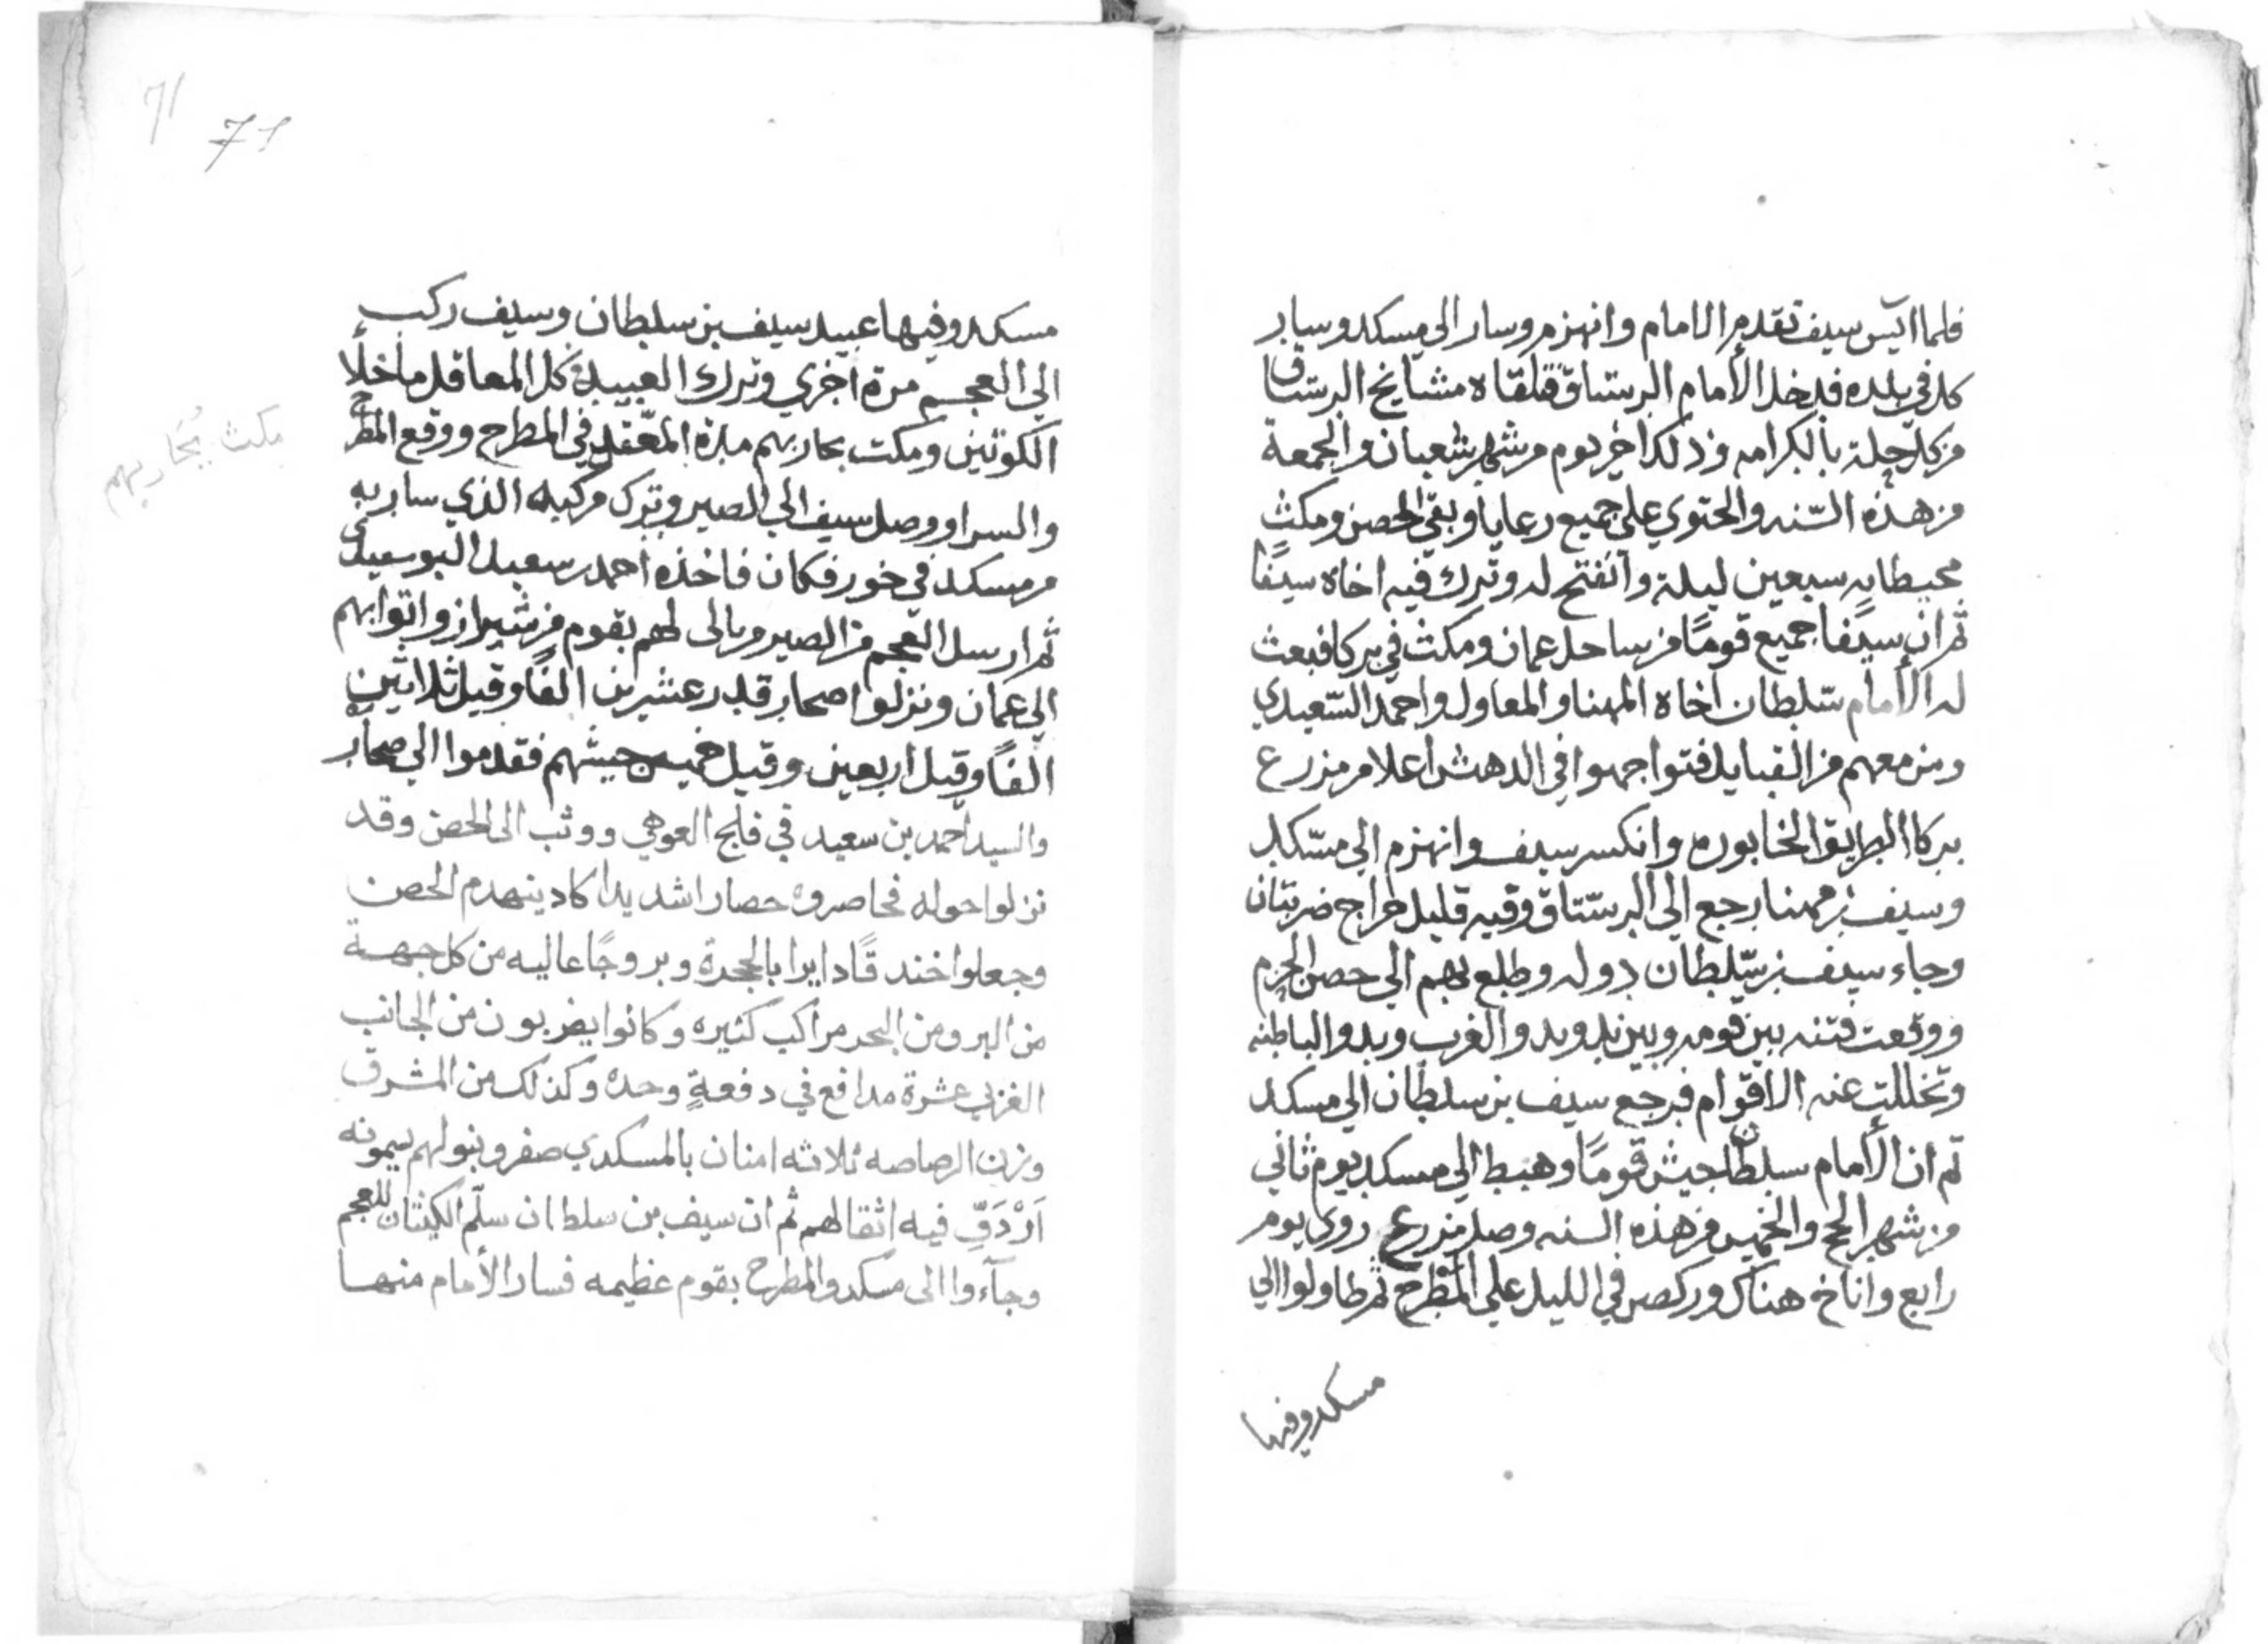 فلما ايس سيف تقدم الامام وانهزم وسار الي مسكد وسار
كل في بلده فدخل الأمام الرستاق فتلقاه مشايخ الرستاق
من كل حلة بالكرامه وذلك اخر يوم من شهر شعبان والجمعة
من هذه السّنه والحتوي علي جميع رعايا وبقي الحصن ومكث
محيطا به سبعين ليلة وانفتح له وترك فيه اخاه سيفًا
ثم ان سيفا جميع قومًا من ساحل عمان ومكث في بركا فبعث
له الأمام سّلطان اخاه المهنا والمعاول واحمد السّعيدي
ومن معهم من القبايل فتواجهوا في الدهش اعلا من مزرع
بركا الطريق الخابوره وانكسر سيف وانهزم الي مسّكد
وسيف بن مهنا رجع الي الرسّتاق وفيه قليل جراح ضربتان
وجاء سيف بن سّلطان دوله وطلع بهم الي حصن الحزم
ووقعت فتنه بين قومه وبين بدو بدو الغرب وبدو الباطنه
وتخللت عنه الاقوام فرجع سيف بن سلطان الي مسكد
ثم ان الأمام سلطان جيش قومًا وهبط الي مسكد يوم ثاني
من شهر الحج والخميس من هذه السنه وصل مزرع روي يوم
رابع واناخ هناك وركض في الليل علي المطرح ثم طاولوا الي
مسكد وفيها
71
71
مسكد وفيها عبيد سيف بن سلطان وسيف ركب
الي العجم مرة اخري وترك العبيد في كل المعاقل ما خلأ
الكوتين ومكت بحاربهم مدة المعّقل في المطرح ووقع المطرح
والسرا ووصل سيف الي الصير وترك مركبه الذي سار به
من مسكد في خور فكان فاخذه احمد بن سعيد البوسعيدي
ثم ارسل العجم من الصير ومالي لهم بقوم من شيراز واتوا بهم
الي عمان ونزلوا صحار قدر عشرين الفًا وقيل ثلاثين
الفًا وقيل اربعين وقيل جيشهم فقدموا الي صحار
والسيد احمد بن سعيد في فلج العوهي ووثب الى الحصن وقد
نزلوا حوله فحاصروه حصارا شديدا كاد ينهدم الحصن
وجعلوا خندقًا دايرا بالحجرة وبروجًا عاليه من كل جهة
من البر ومن البحر مراكب كثيره وكانوا يضربون من الجانب
الغربي عشرة مدافع في دفعةٍ وحده وكذلك من المشرق
وزن الرصاصه ثلاثه امنان بالمسكدي صفر وبنو لهم يمونه
اَرْدَفِّ فيه اثقالهم ثم ان سيف بن سلطان سلّم الكيتان للعجم
وجآءوا الى مسكد والمطرح بقوم عظيمه فسار الأمام منها
مكث يُحَاربهم